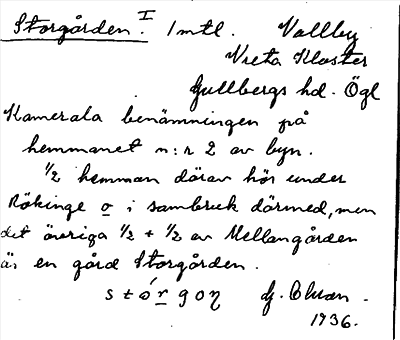 Storgården. I 1 mtl. Vallby
Vreta Kloster
Gullbergs hd. Ögl
Kamerala benämningen på
hemmanet n:r 2 av byn.
1/2 hemman därav hör under
Rökinge o i sambruk därmed, men
det övriga 1/2 + 1/2 av Mellangården
är en gård Storgården.
stórgoη G.
1936.